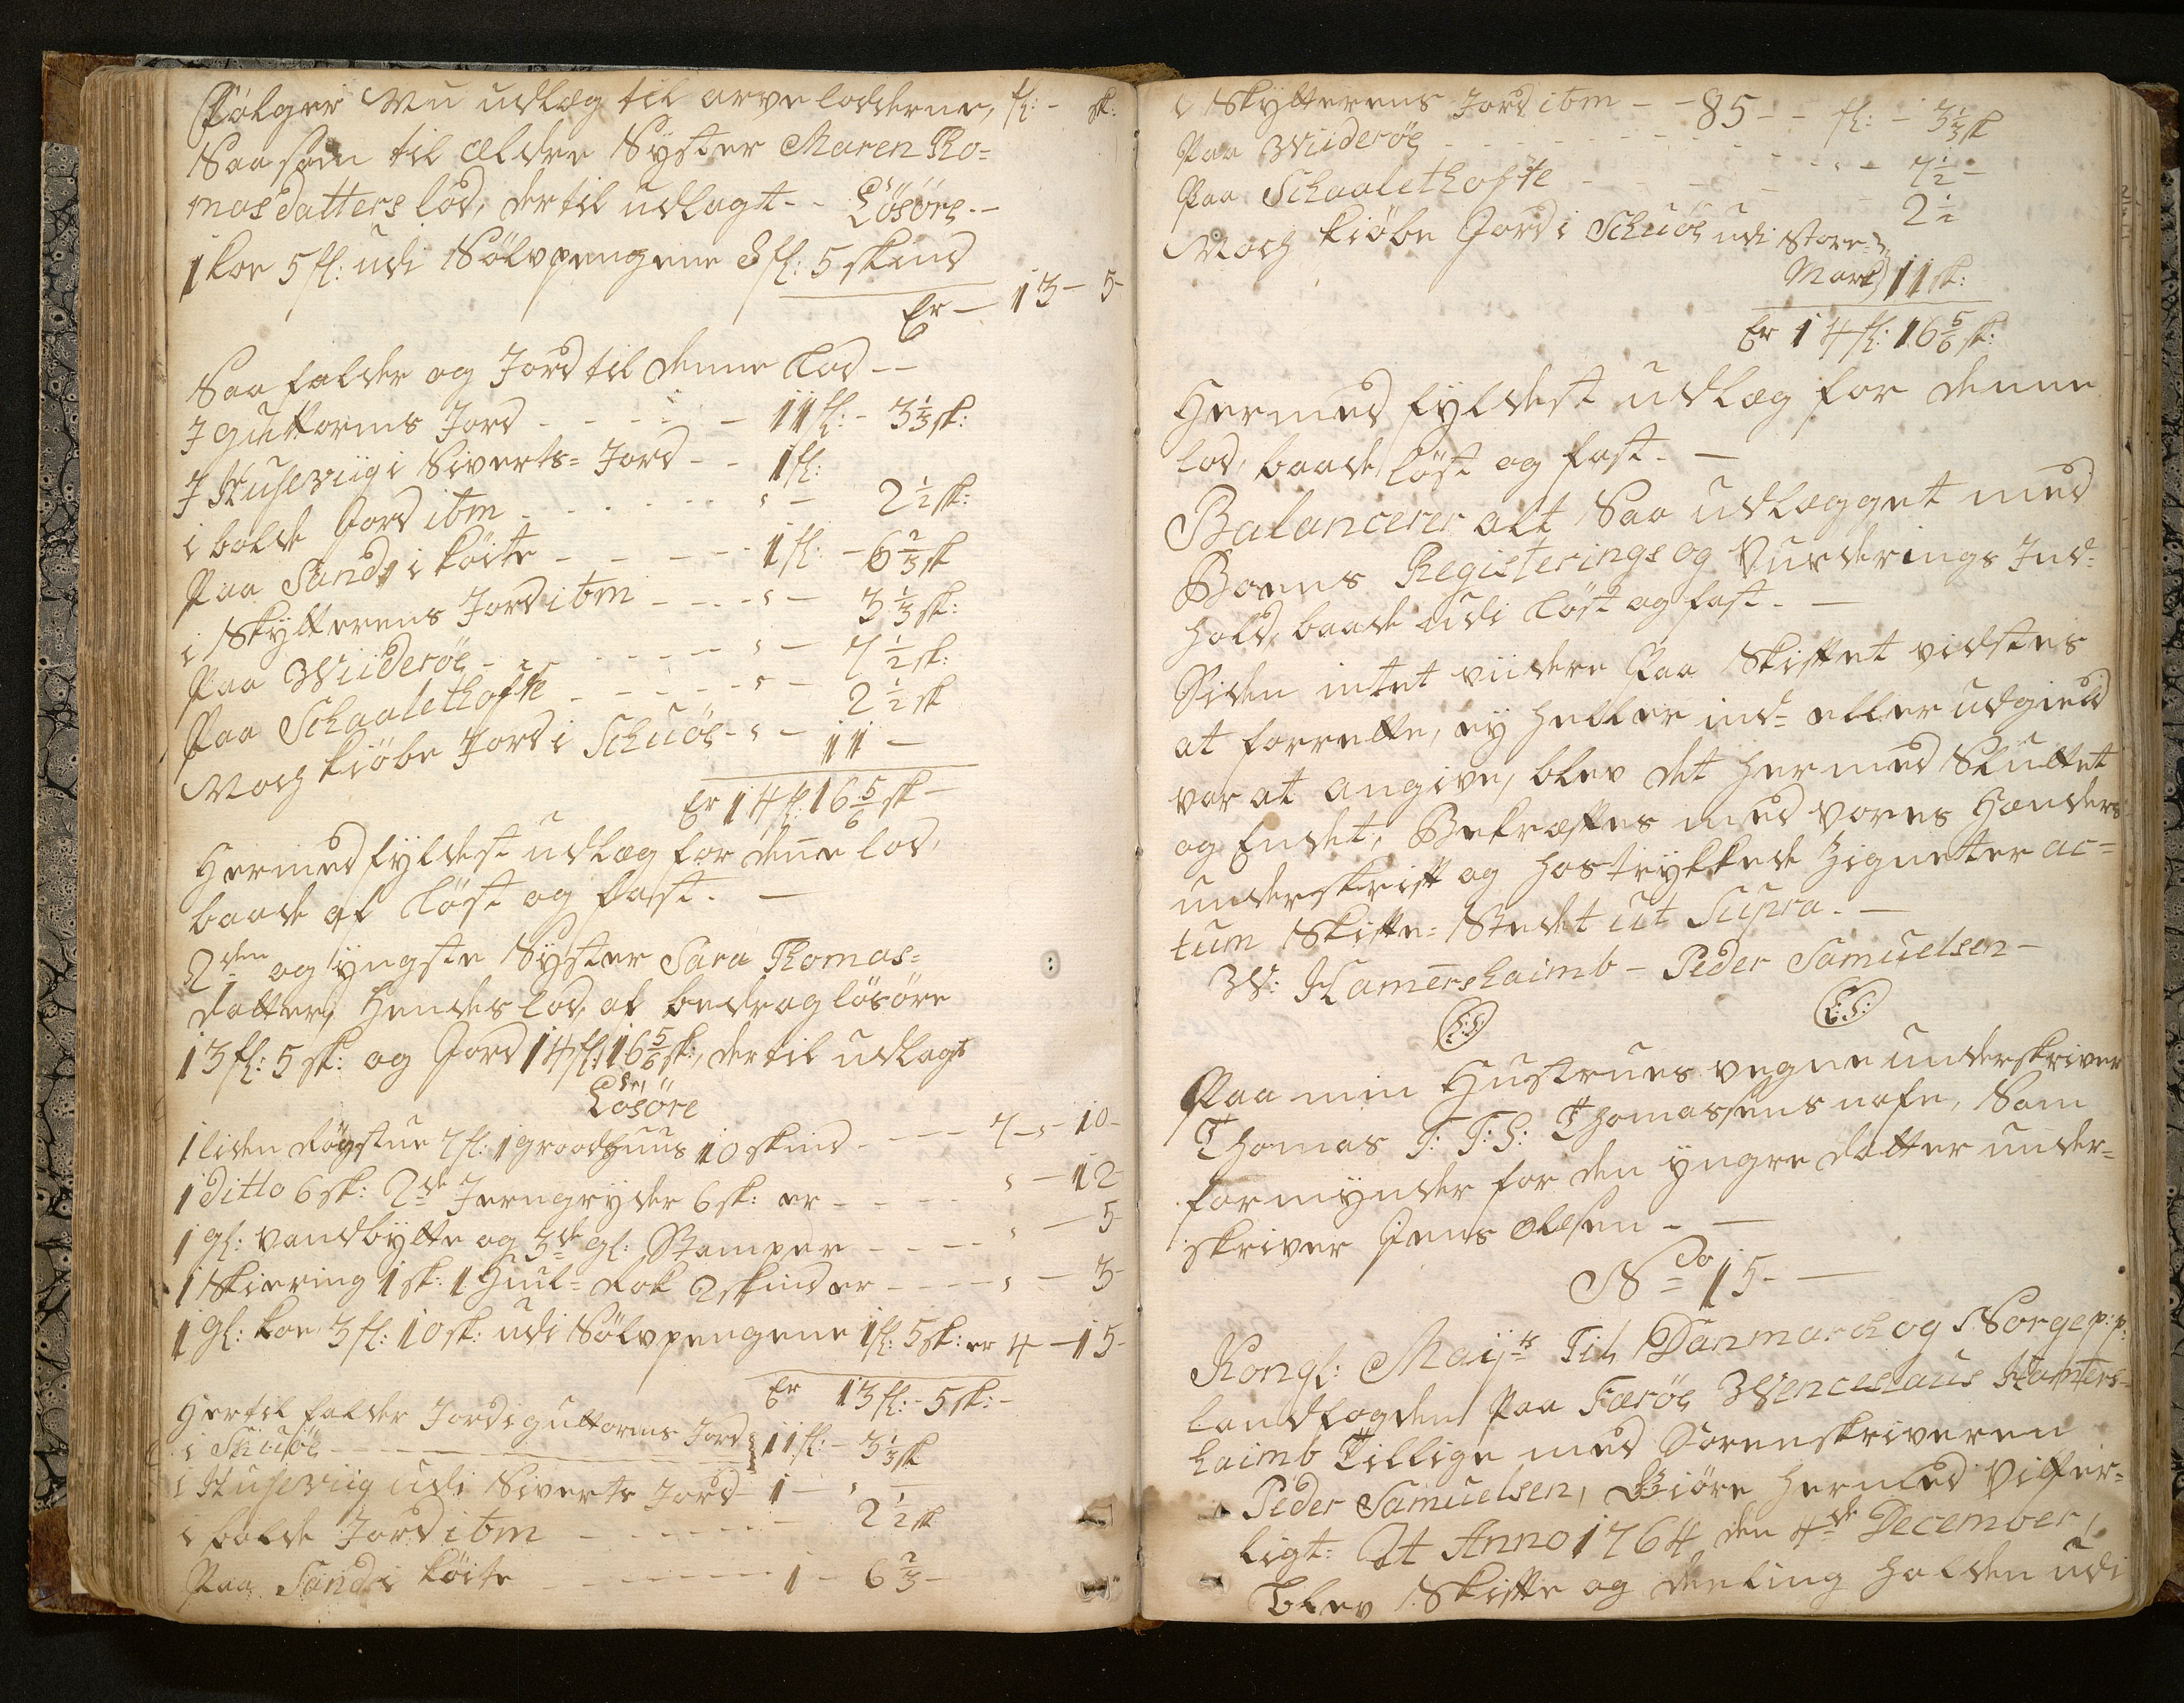 Følger Nu udlæg til arvelodderne, fl: - sk:
Saasom til ældre Syster Maren Tho=
masdatters lod, dertil udlagt - - Løsøre - -
1 koe 5 fl: udi Sølvpengene 8 fl: 5 skind
Er — 13 - 5 -
Saa falder og Jord til denne Lod - -
I guttorms Jord - - - - - 11 fl: - 3 1/3 sk:
I Husevviig i Siverts= Jord - - 1 fl:
i bolde Jord ibm - - - - - " - 2 1/2 sk:
Paa Sand i køite - - - - - 1 fl: - 6 2/3 sk
i Skytterens Jord ibm - - - - " - 3 1/3 sk:
Paa Wiiderøe - - - - - - " - 7 1/2 sk:
Paa Schaalethofte - - - - - " - 2 1/2 sk
Noch kiøbe Jord i Schuøe - " - 11 -
Er 14 fl: 16 5/6 sk -
Hermed fyldest udlæg for denne lod,
baade af Løst og fast. —
2den og yngste Syster Sara Thomas=
datter, Hendes lod, af bedrag løsøre
13 fl: 5 sk: og Jord 14 fl: 16 5/6 sk:, dertil udlagt
Løsøre
1 liden Røgstue 7 fl: 1 Groodhuus 10 skind - - - 7 - " - 10 -
1 Ditto 6 sk: 2de Jerngryder 6 sk: er - - - - " - 12 -
1 gl: vandbytte og 3de gl: Stamper - - - - " - 5 -
1 Skiering 1 sk: 1 Huil= Rok 2 skind er - - - " - 3 -
1 gl: koe 3 fl: 10 sk: udi Sølvpengene 1 fl: 5 sk: er 4 - 15 -
Er 13 fl: - 5 sk: -
Hertil falder Jord i guttorms Jord
i Skuøe - - - - 11 fl: - 3 1/3 sk
i Husevviig udi Siverts Jord - 1 - " -
i bolde Jord ibm - - - - - 2 1/2 sk
Paa Sand i køite - - - - - 1 - 6 2/3 -
85
i Skytterens Jord ibm - - - - fl: - 3 1/3 sk
Paa Wiiderøe - - - - - - " - 7 1/2 -
Paa Schaalethofte - - - - - 2 1/2
Noch kiøbe Jord i Schuøe udi Store=
Mark) 11 sk:
Er 14 fl: 16 5/6 sk:
Hermed fyldest udlæg for denne
lod, baade løst og fast. —
Balancerer alt Saa udlægget med
Boens Registerings og Vurderings Ind=
hold, baade udi Løst og fast. —
Siden intet viidere Paa Skiftet vidstes
at forrette, ey heller ind= eller udgield
var at angive, blev det hermed Sluttet
og Endet, Bekræftes med vores Hænders
underskrift og hostrykkede Zigneter ac=
tum Skifte= Stedet ut Supra. —
W: Hamershaimb - Peder Samuelsen -
(L:S:) (L:S:)
Paa min Hustrues vegne underskriver
Thomas T: T: S: Thomassens nafn, Som
formynder for den yngre datter under=
skriver Jens Olesen - —
No 15 - —
Kongl: Maijts Til Danmarck og Norge p:p:
landfogden Paa Færøe Wenceslaus Hamers=
haimb Tillige med Sorenskriveren
Peder Samuelsen, Giøre hermed Vitter=
ligt: At Anno 1764 den 4de December,
blev Skifte og deeling holden udi